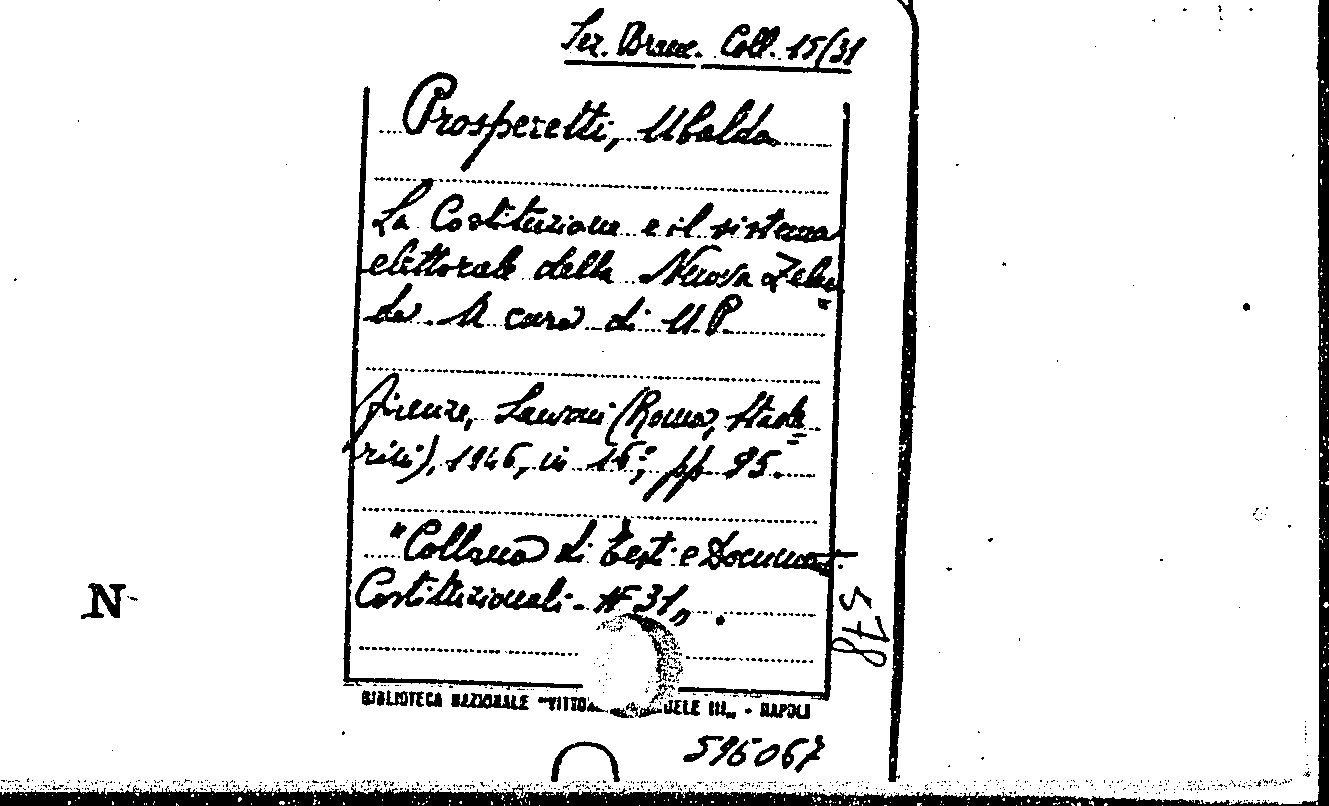 Sez. Branc. Coll. 15/31
Prosperetti, Ubaldo
La Costituzione e il sistema
elettorale della Nuova Zelan=
da. A cura di U.P.
Firenze, Sansoni (Roma, Stade=
rini), 1946, in 16°, pp 95.
"Collana di Testi e Document.
Costituzionali - N° 31".
578
N
BIBLIOTECA NAZIONALE "VITTO ELE III" - NAPOLI
596067